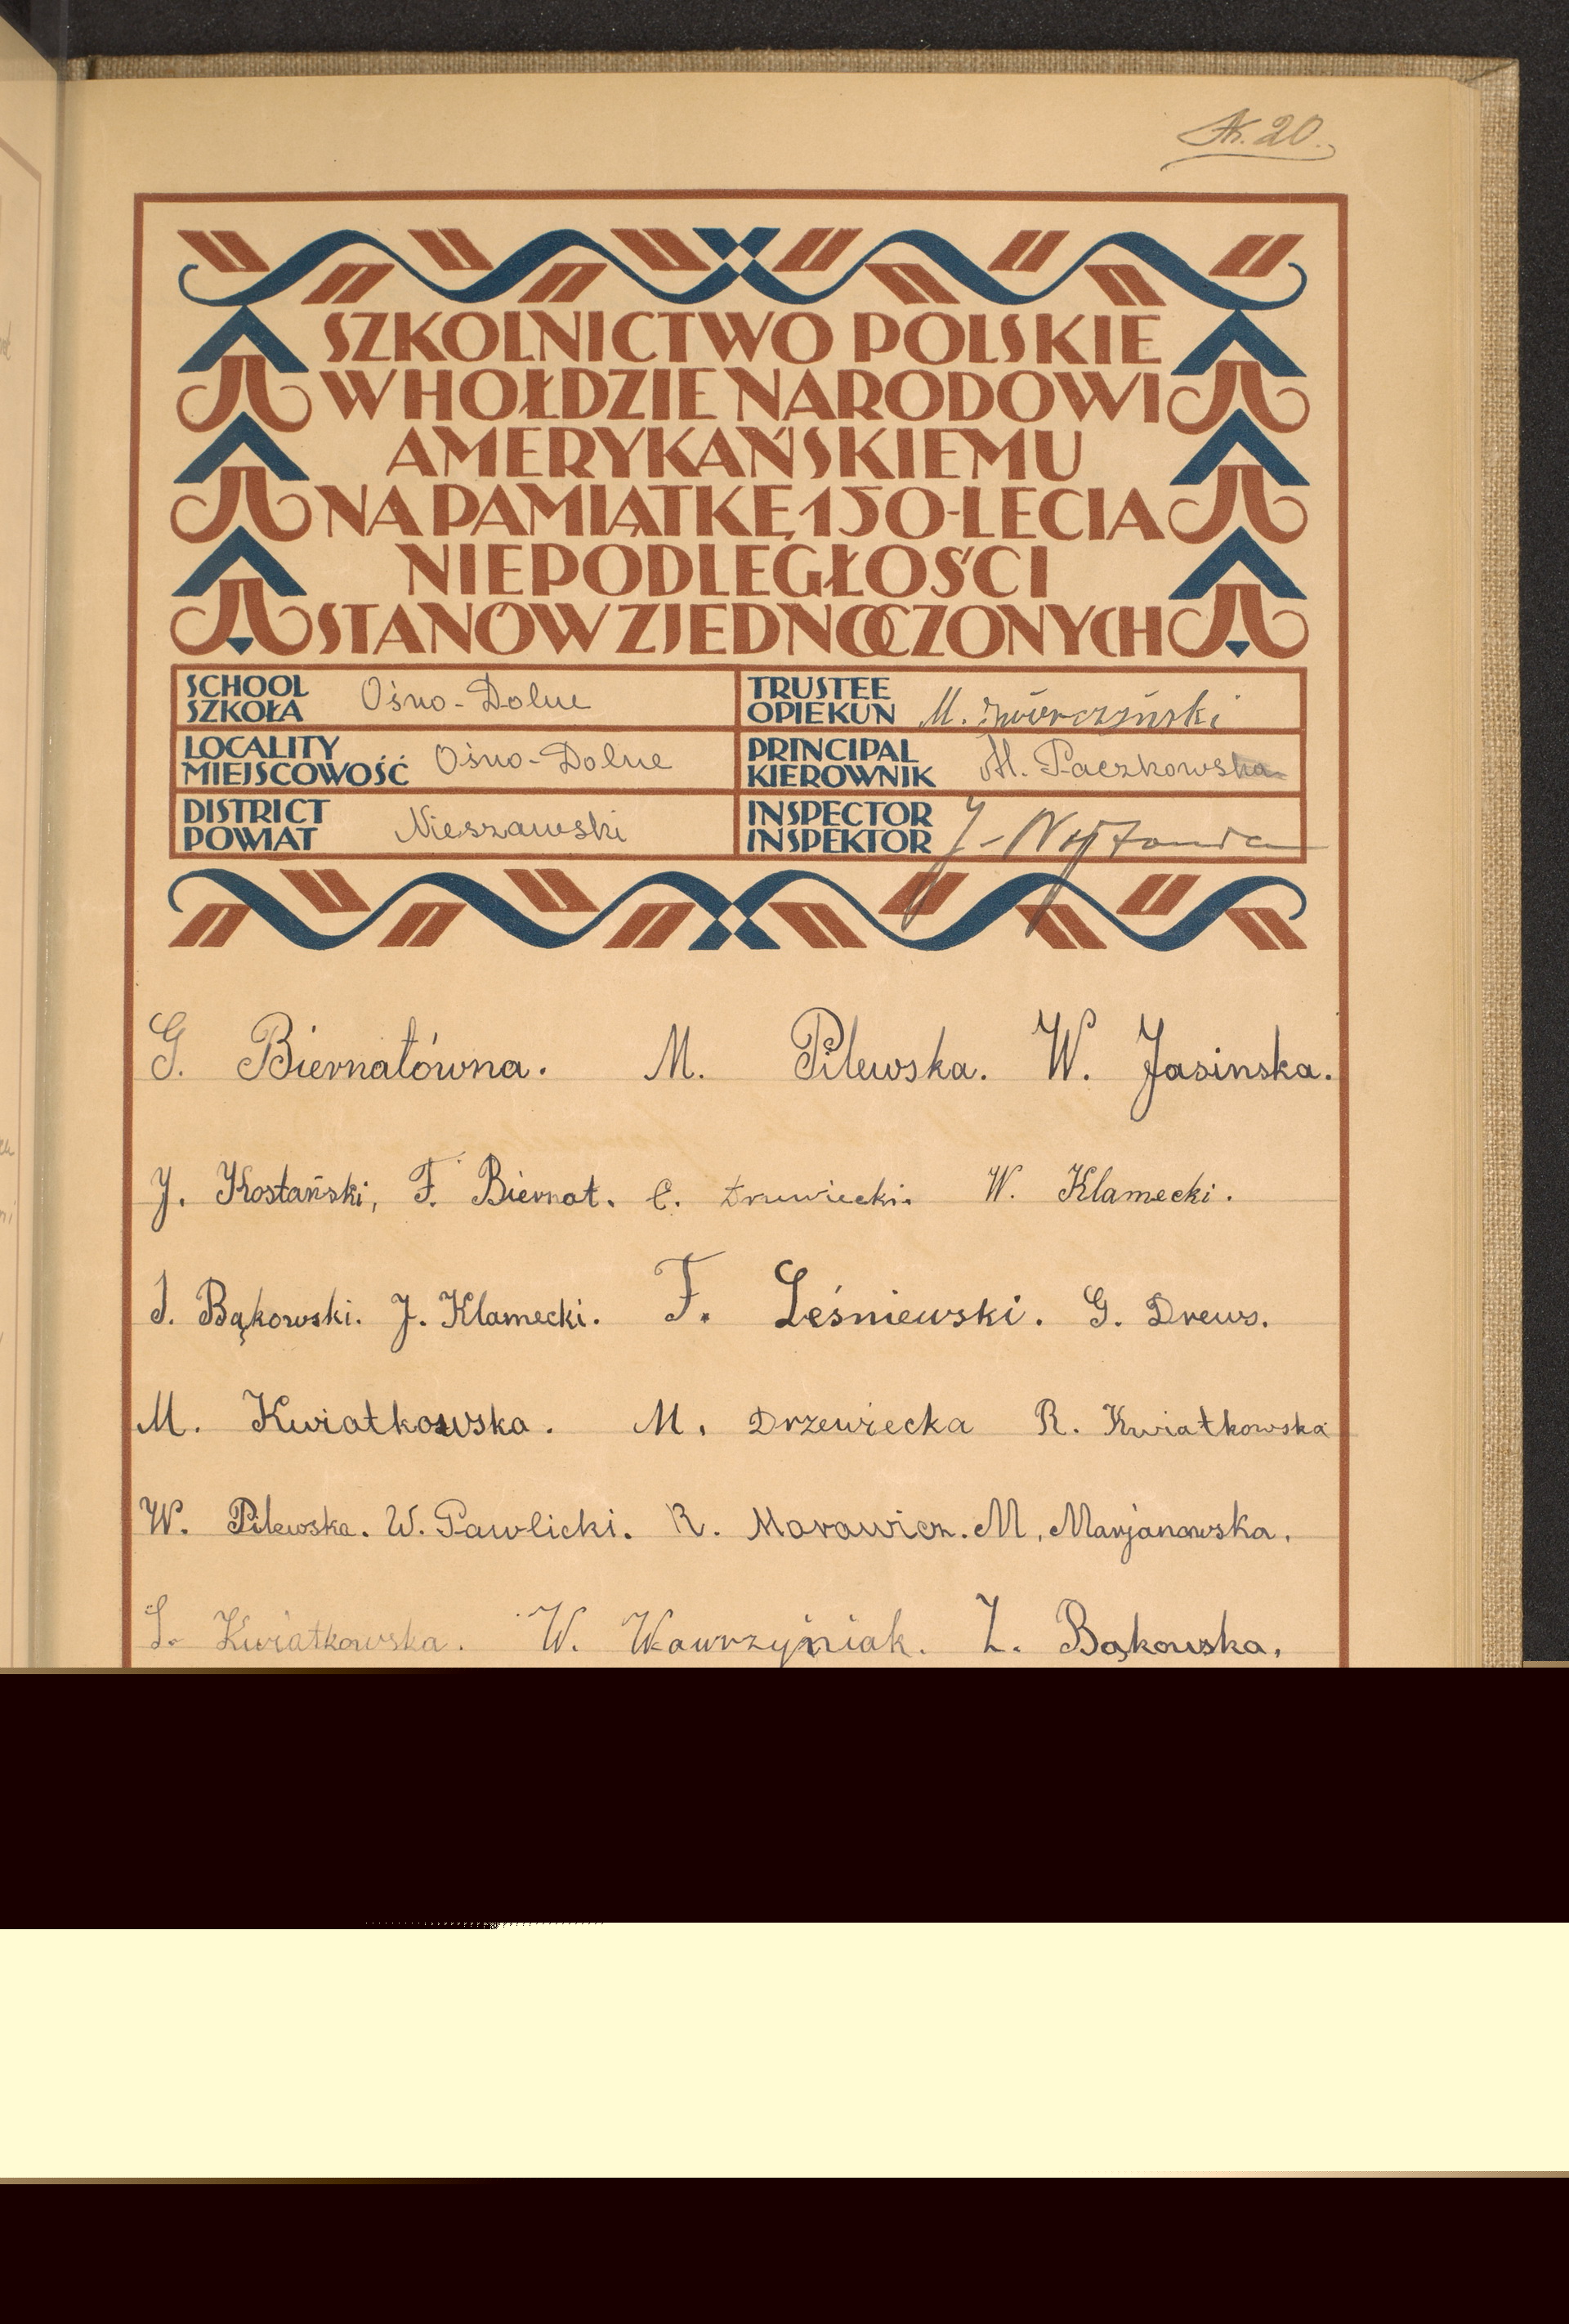 Str. 20.
SZKOLNICTWO POLSKIE
W HOŁDZIE NARODOWI
AMERYKAŃSKIEMU
NA PAMIĄTKĘ 150-LECIA
NIEPODLEGŁOŚCI
STANÓW ZJEDNOCZONYCH
SCHOOL
SZKOŁA Ośno-Dolne
TRUSTEE
OPIEKUN M.
LOCALITY
MIEJSCOWOŚĆ Ośno-Dolne
PRINCIPAL
KIEROWNIK M. Paczkowska
DISTRICT
POWIAT Nieszawski
INSPECTOR
INSPEKTOR J.
G. Biernatówna. M. Pilewska. W. Jasinska.
J. Kostański, F. Biernat. E. W. Klamecki.
J. Bąkowski. J. Klamecki. F. Leśniewski. G. Drews.
M. Kwiatkowska. M. Drzewiecka R. Kwiatkowska
W. Pilewska. W. Pawlicki. R. Morawicz. M. Marjanowska.
S. Kwiatkowska. W. Wawrzyniak. Z. Bąkowska.